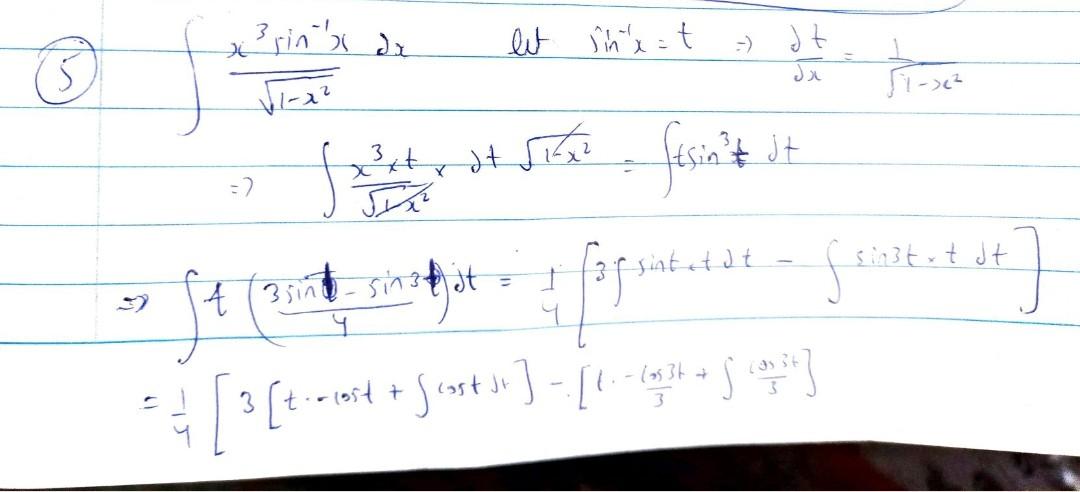 (5) ∫ x³ sin⁻¹x dx / √(1-x²) let sin⁻¹x = t ⇒ dt/dx = 1/√(1-x²)
⇒ ∫ x³ × t / √(1-x²) × dt √(1-x²) = ∫ t sin³t dt
⇒ ∫ t (3 sin t - sin 3t / 4) dt = 1/4 [3∫ sin t × t dt - ∫ sin 3t × t dt]
= 1/4 [3[t · -cos t + ∫ cos t dt] - [t · -cos 3t / 3 + ∫ cos 3t / 3]